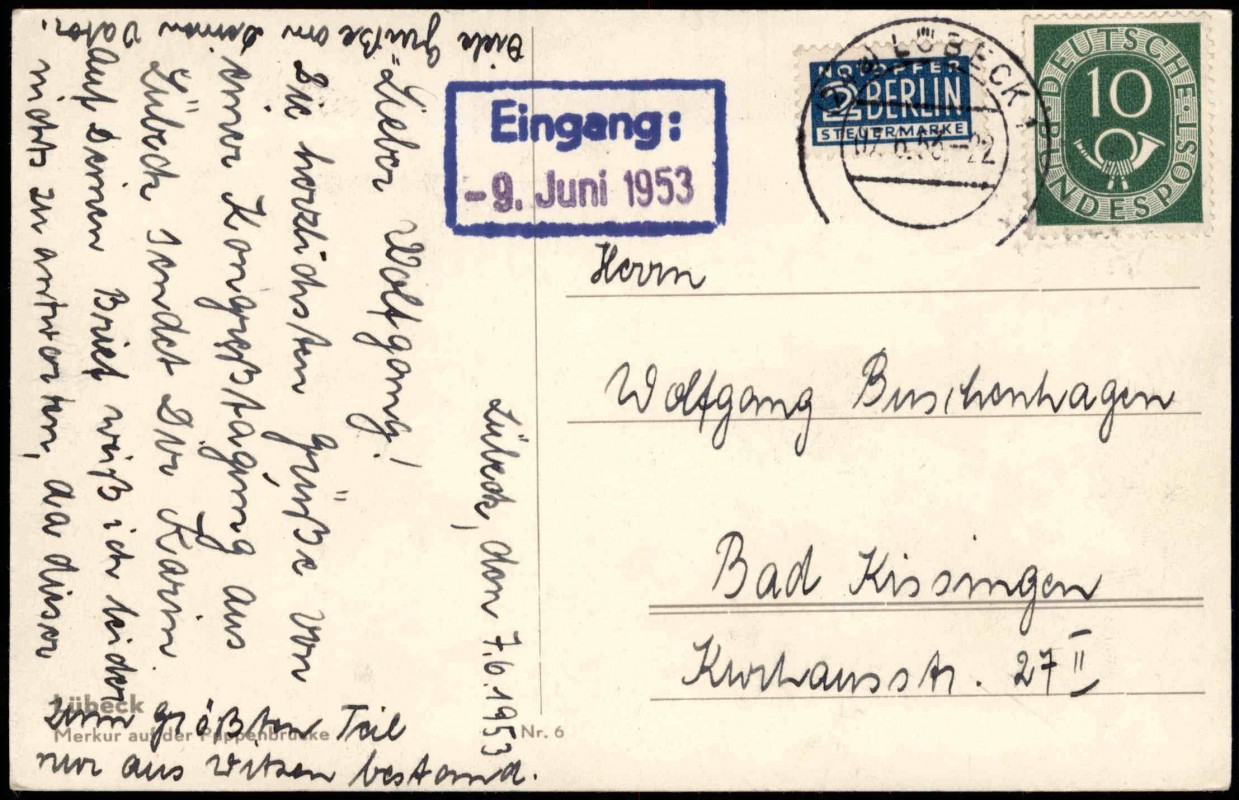 Lübeck, den 7.6.1953
Lieber Wolfgang!
Die herzlichsten Grüße von
einer Kongreßtagung aus
Lübeck sendet Dir Karin.
Auf Deinen Brief weiß ich leider
nichts zu antworten, da dieser
zum größten Teil
nur aus Witzen bestand.
Viele Grüße an Deinen Vater.
Eingang:
-9. Juni 1953
NOTOPFER
2 BERLIN
STEUERMARKE
LÜBECK 1
DEUTSCHE BUNDESPOST
10
Herrn
Wolfgang Buschenhagen
Bad Kissingen
Kurhausstr. 27 II
Lübeck
Merkur auf der Puppenbrücke
Nr. 6